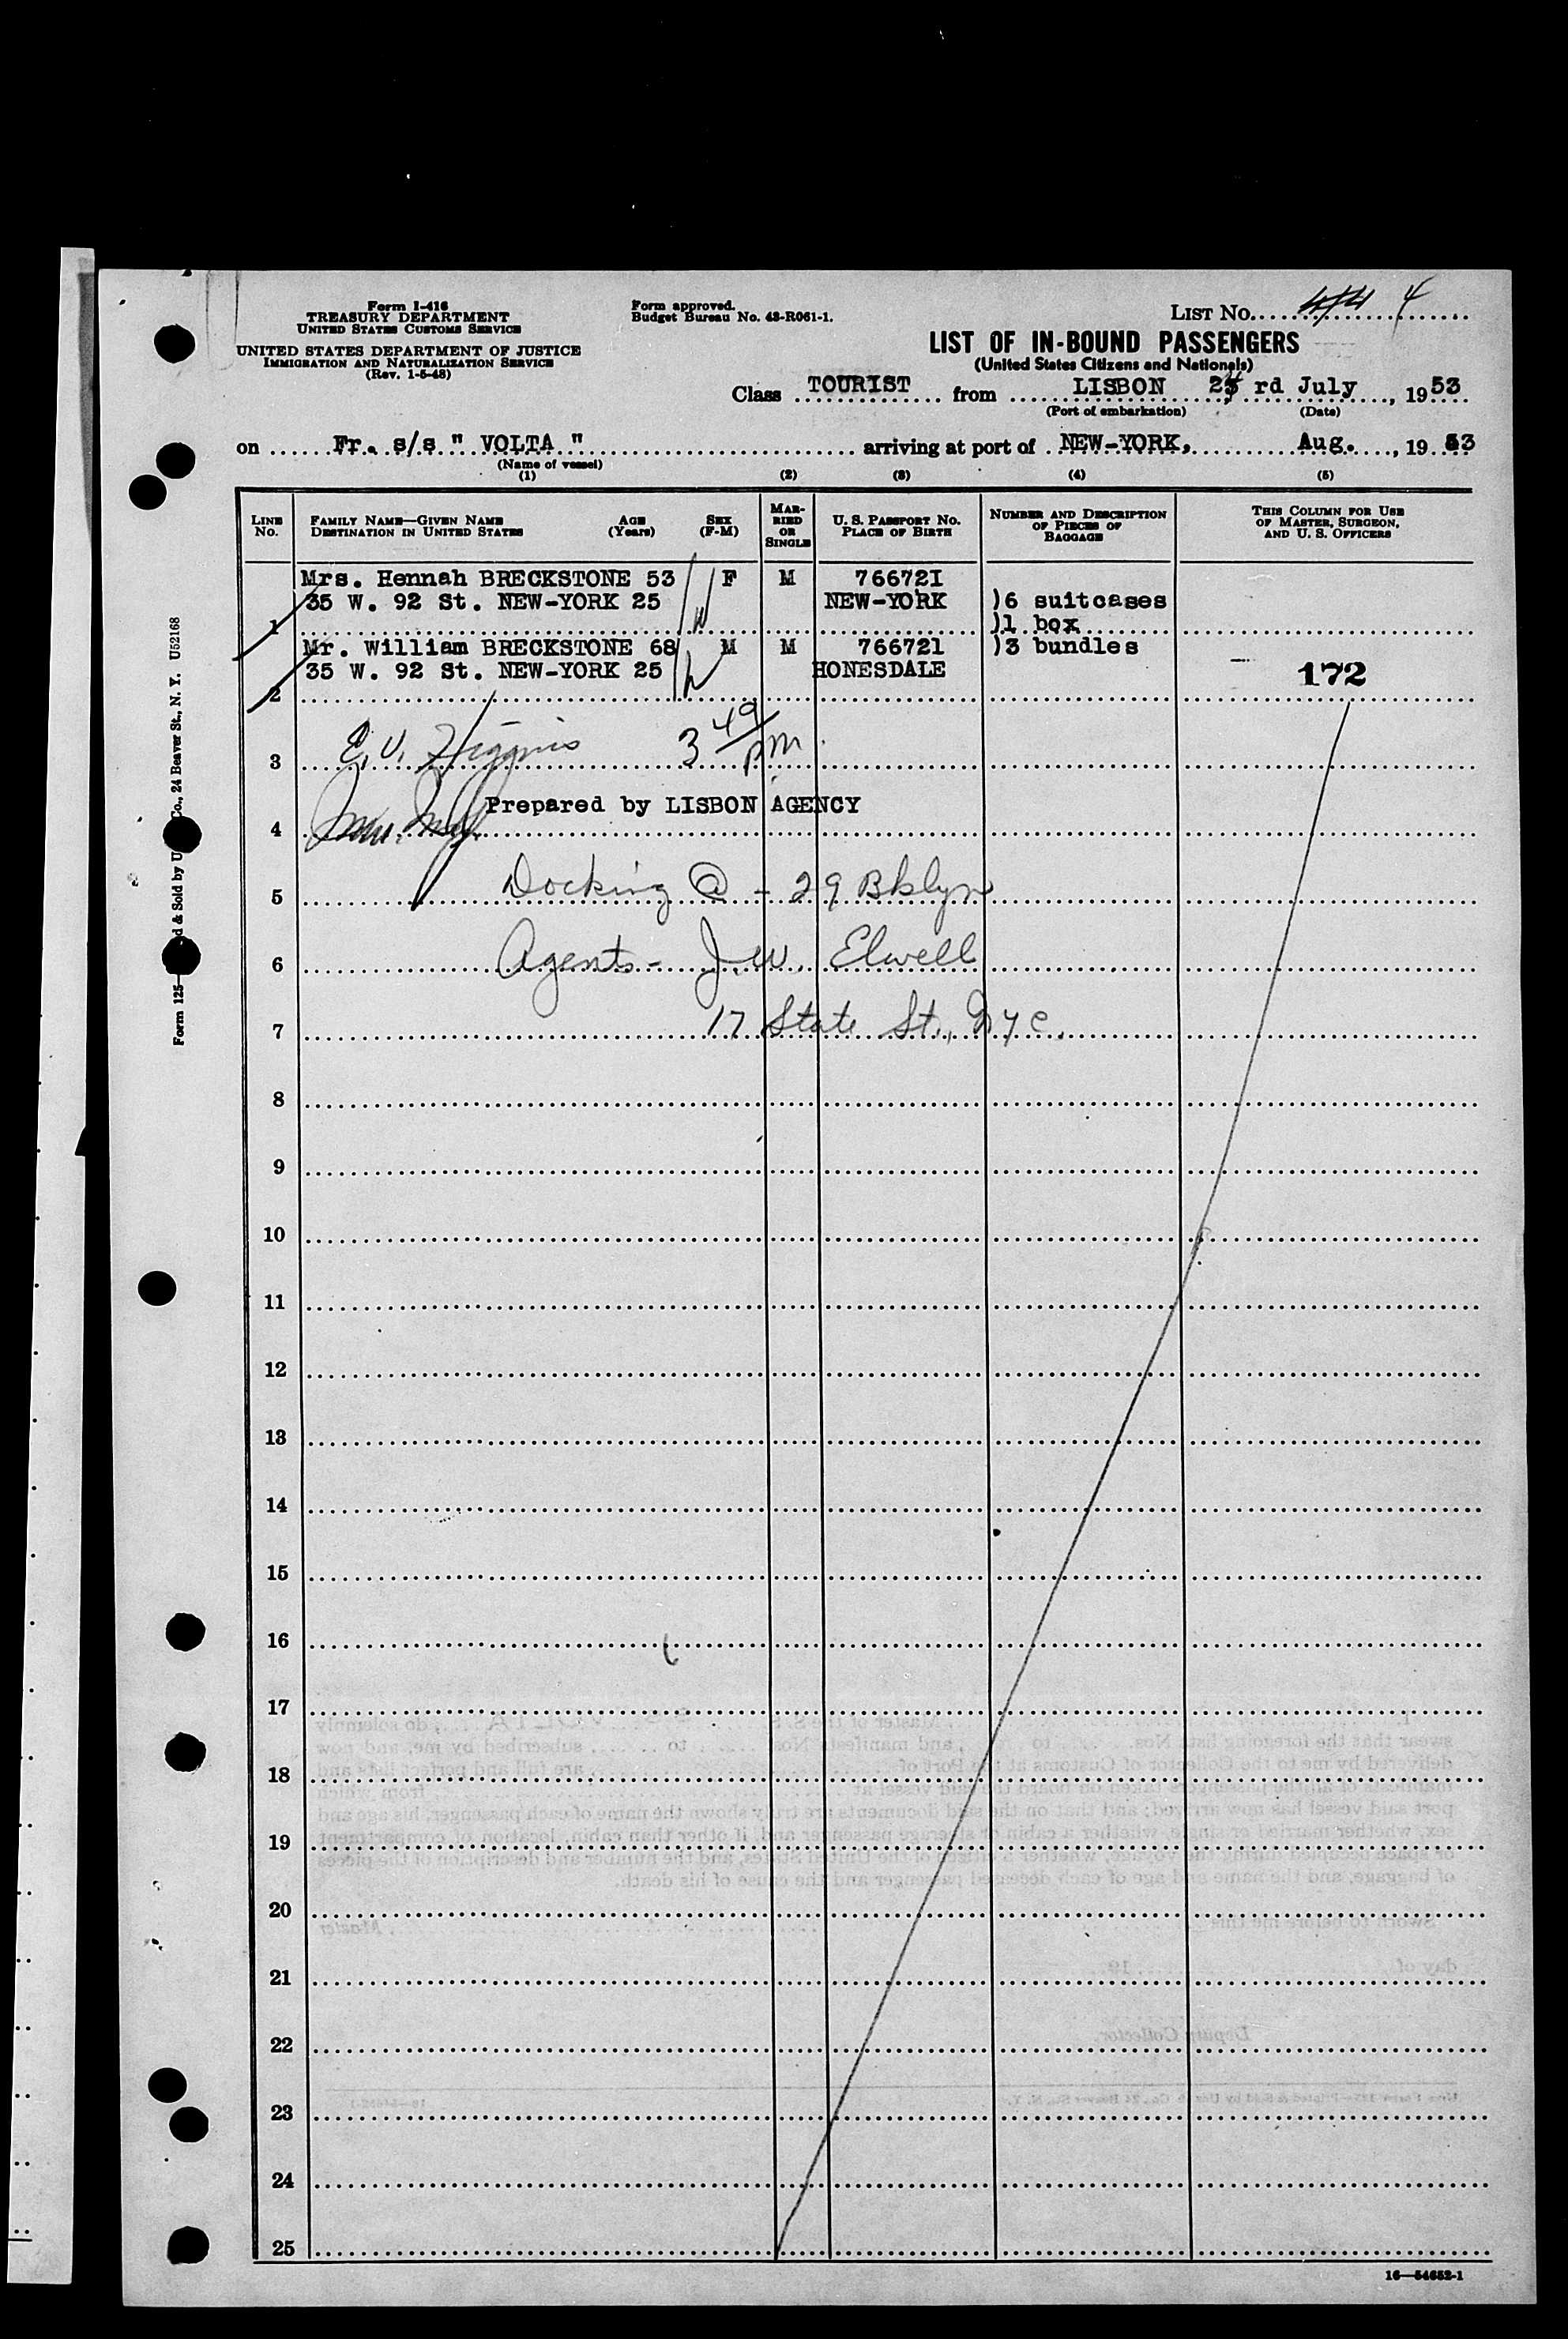 Form I-416
TREASURY DEPARTMENT
UNITED STATES CUSTOMS SERVICE
UNITED STATES DEPARTMENT OF JUSTICE
IMMIGRATION AND NATURALIZATION SERVICE
(Rev. 1-5-48)
Form approved.
Budget Bureau No. 43-R061-1.
LIST NO. 4
LIST OF IN-BOUND PASSENGERS
(United States Citizens and Nationals)
Class TOURIST from LISBON rd July, 1953
(Port of embarkation) (Date)
on Fr. s/s " VOLTA " arriving at port of NEW-YORK, Aug., 1953
(Name of vessel)
(1) (2) (3) (4) (5)
LINE NO.
FAMILY NAME—GIVEN NAME
DESTINATION IN UNITED STATES
AGE (Years)
SEX (F-M)
MARRIED OR SINGLE
U. S. PASSPORT NO.
PLACE OF BIRTH
NUMBER AND DESCRIPTION OF PIECES OF BAGGAGE
THIS COLUMN FOR USE OF MASTER, SURGEON, AND U. S. OFFICERS
Mrs. Hennah BRECKSTONE 53 F M 76672I
35 W. 92 St. NEW-YORK 25 NEW-YORK )6 suitcases
1 )1 box
Mr. William BRECKSTONE 68 M M 766721 )3 bundles
35 W. 92 St. NEW-YORK 25 HONESDALE 172
2
3 E. V. Higgins 3 49 pm
Prepared by LISBON AGENCY
4
5 Docking @ - 29 Bklyn
6 Agents - J.W. Elwell
7 17 State St., N.Y.C.
8
9
10
11
12
13
14
15
16
17
18
19
20
21
22
23
24
25
16—54652-1
Form 125— d & Sold by U Co., 24 Beaver St., N. Y. U52168